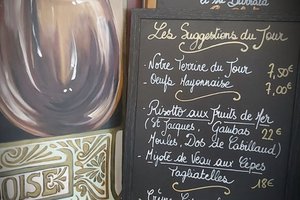 Les Suggestions du Jour
- Notre Terrine du Jour 7,50€
- Oeufs Mayonnaise 7,00€
- Risotto aux Fruits de Mer
(St Jacques, Gambas 22€
Moules, Dos de Cabillaud)
- Myoté de Veau aux Cèpes
Tagliatelles 18€
OISE